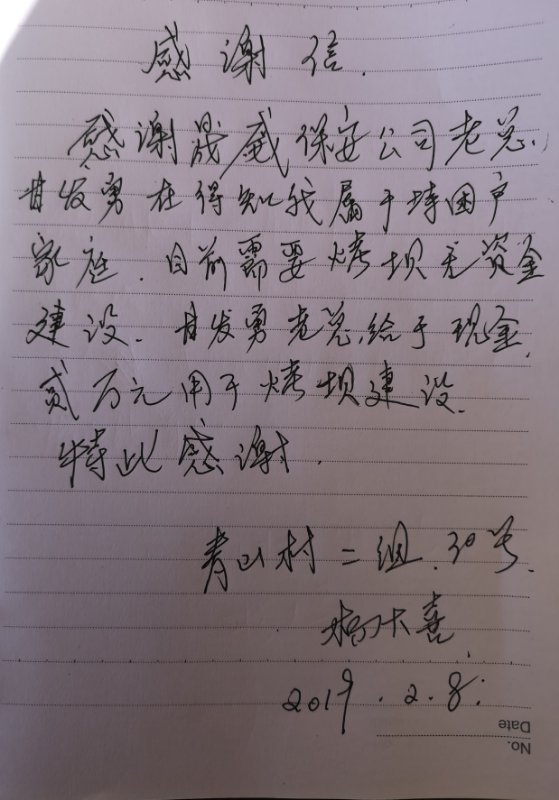 感谢信.
感谢晟威保安公司老总.
甘发勇在得知我属于特困户
家庭.目前需要烤坝无资金
建设.甘发勇老总给于现金
贰万元用于烤坝建设.
特此感谢.
青山村二组.30号.
杨大喜
2019.2.8.
No.
Date